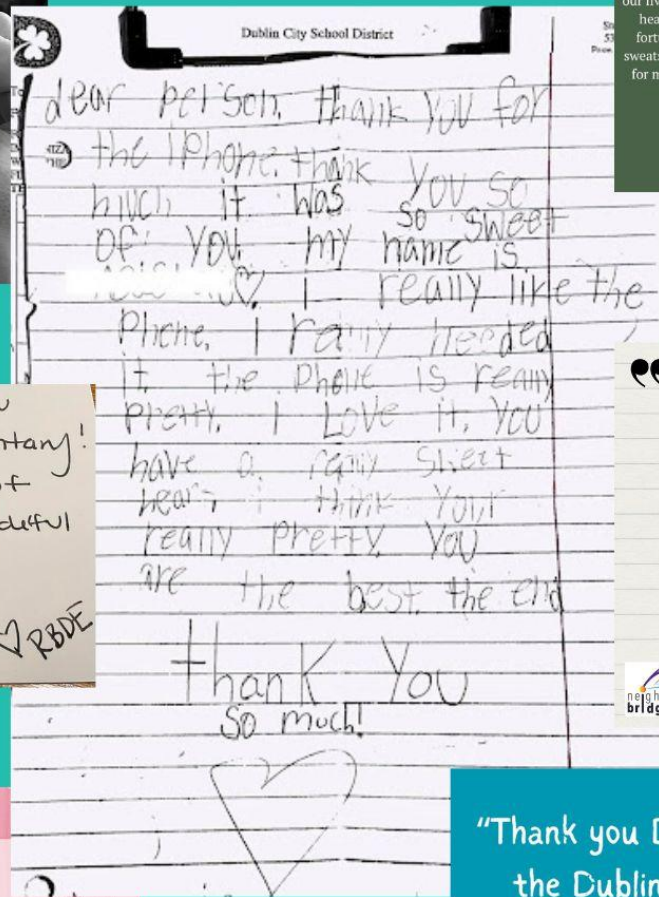 Dublin City School District
dear person, thank you for
the iPhone. thank you so
much it was so sweet
of you. my name is
I really like the
Phone. I rally needed
it. the phone is really
pretty. I Love it. You
have a rally sweet
heart i think your
really pretty. You
are the best. the end
thank You
so much!
ntary!
of
deful
RBDE
our liv
hea
fort
sweats
for m
neigh
bridg
"Thank you D
the Dublin